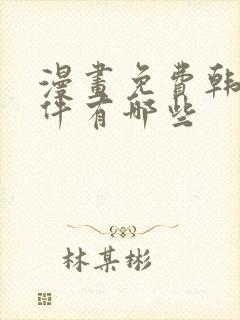 漫畫免費韓
件有哪些
林某彬